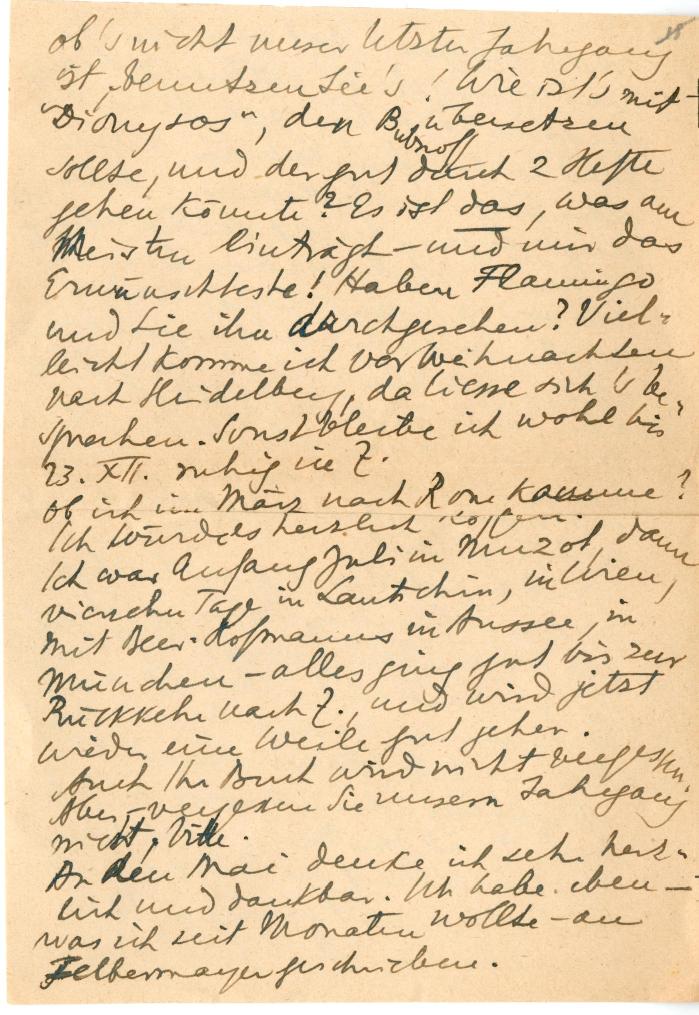 ob's nicht unser letzter Jahrgang
ist, benutzen Sie's! Wie ist's mit
"Dionysos", den Bubnoff übersetzen
sollte, und der gut durch 2 Hefte
gehen könnte? Es ist das, was am
Meisten einträgt – und mir das
Erwünschteste! Haben Flamingo
und Sie ihn durchgesehen? Viel-
leicht komme ich vor Weihnachten
nach Heidelberg, da liesse sich's be-
sprechen. Sonst bleibe ich wohl bis
23. XII. ruhig in Z.
Ob ich im März nach Rom komme?
Ich würde es herzlich hoffen.
Ich war Anfang Juli in Muzot, dann
vierzehn Tage in Lautschin, in Wien,
mit Beer-Hofmanns in Aussee, in
München – alles ging gut bis zur
Rückkehr nach Z., und wird jetzt
wieder eine Weile gut gehen.
Auch Ihr Buch wird nicht vergessen.
Aber – vergessen Sie unsern Jahrgang
nicht, bitte.
An den Mai denke ich sehr herz-
lich und dankbar. Ich habe eben –
was ich seit Monaten wollte – an
Felbermayer geschrieben.